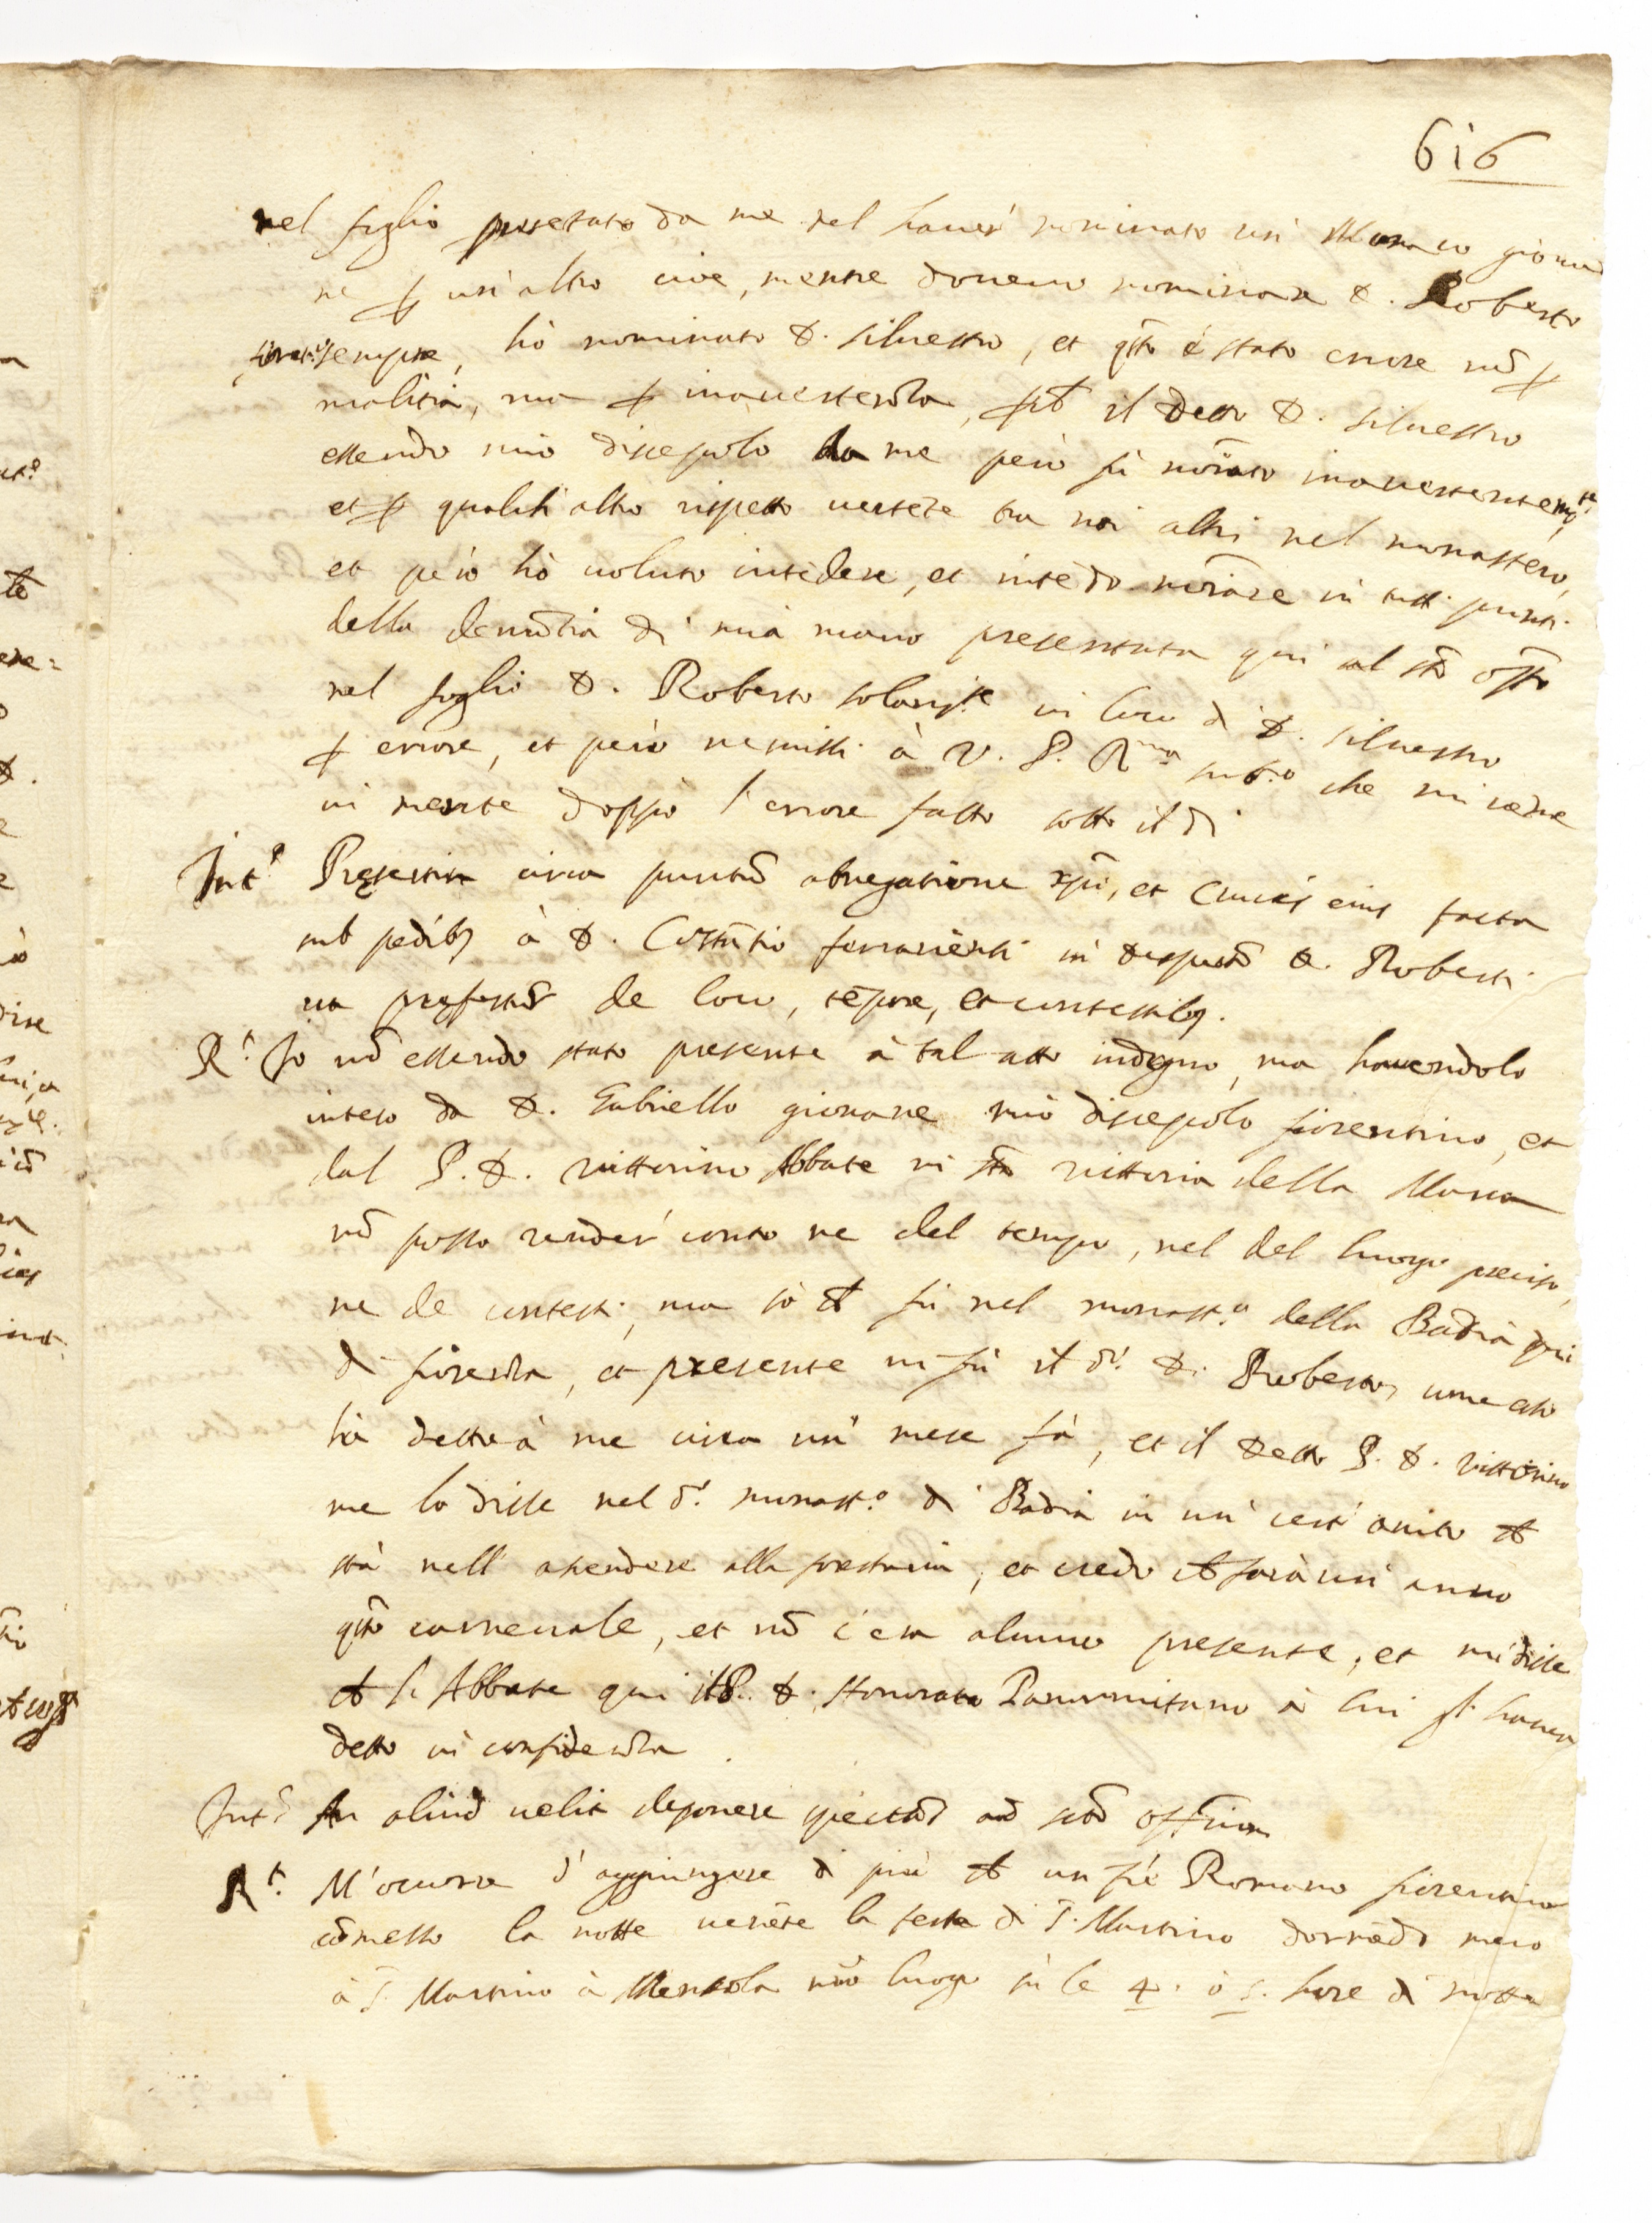 616
nel foglio presetato da me del hauer' nominato un' Monaco gioua
ne ꝑ un'altro cioe, mentre doueuo nominare D. Roberto
sempre, hò nominato D. siluestro, et q̃sto é stato errore nõ ꝑ
malitia, ma ꝑ inauertẽza, ꝑch il detto D. siluestro
essendo mio discepolo da me però fù noĩato inauertentemte
et ꝑ qualch' altro rispetto uertẽte tra noi altri nel monastero,
et però hò uoluto intẽdere, et intẽdo noĩare in tutti punti
della denũtia di mia mano presentata qui al sto offo
nel foglio D. Roberto solamte in loco di D. siluestro
ꝑ errore, et però uenissi à V. P. Rma subo che mi uẽne
in mente doppò l'errore fatto sotto il dì
Intus Pręsertim circa punctũ abnegatione xpi, et Crucis eius facta
sub pedibꝫ à D. Costãtio ferrariẽsi in despectũ D. Roberti
ut profertur de loco, tẽpore, et contestibꝫ.
Rt. Io nõ essendo stato presente à tal atto indegno, ma hauendolo
inteso da D. Gabriello giouane mio discepolo fiorentino, et
dal P. D. Vittorino Abbate in sta Vittoria della Marca
nõ posso render' conto ne del tempo, nel del luogo preciso,
ne de contesti, ma sò ch fù nel monasto. della Badia qui
di fiorẽza, et presente ui fù il do. D. Roberto, come esso
hà detto à me circa un' mese fà, et il detto P. D. Vittorino
me lo disse nel do. monasto. di Badia in un' cert' andito ch
stà nell' ascendere alla foresteria, et credo ch sarà un' anno
q̃sto carneuale, et nõ c'era alcuno presente, et mi disse
ch l'Abbate qui il P. D. Honorato Panormitano à lui l' haueua
detto in confidenza.
Intus An aliud uelit deponere spectãs ad sctũ offitium
Rt. M'occorre d'aggiungere di più ch un frẽ Romano fiorentino
cõmesso la notte uenẽte la festa di S. Martino dormẽdo meco
à S. Martino à Mensola nrõ luogo sù le 4. ò 5. hore di notte